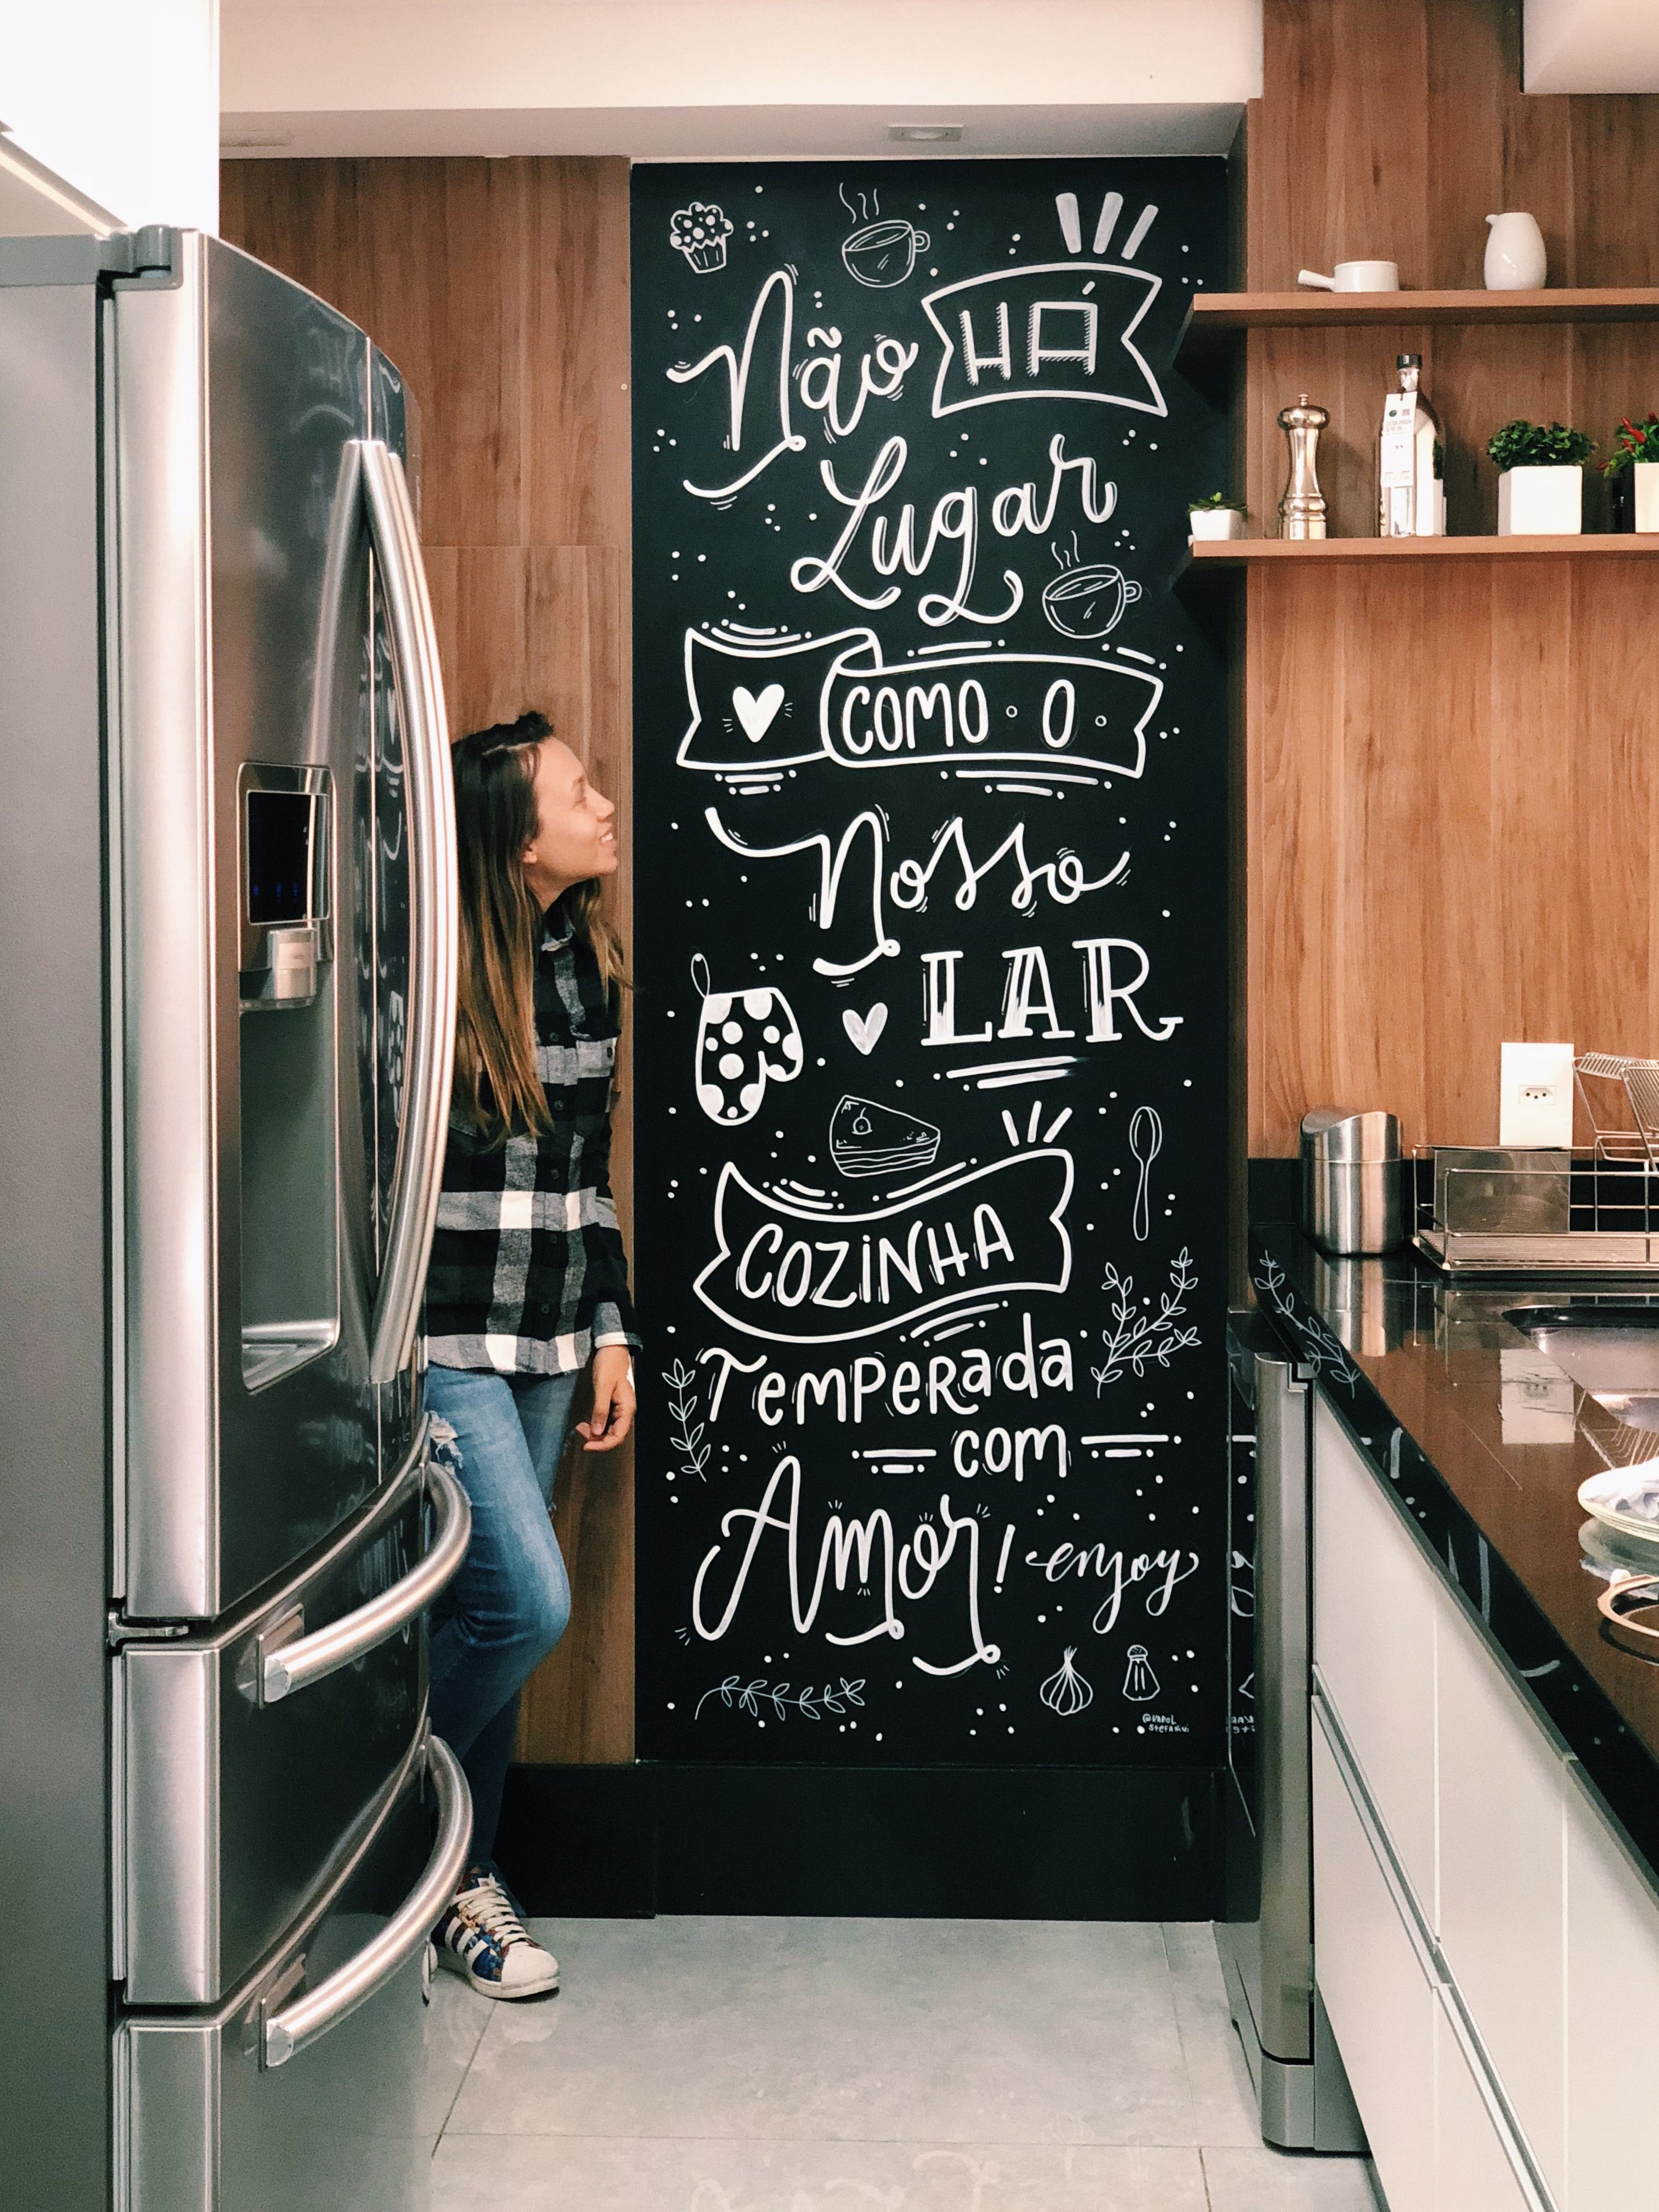 Não HÁ
Lugar
COMO O
Nosso
LAR
COZINHA
Temperada
com
Amor! enjoy
@karol
stefanini